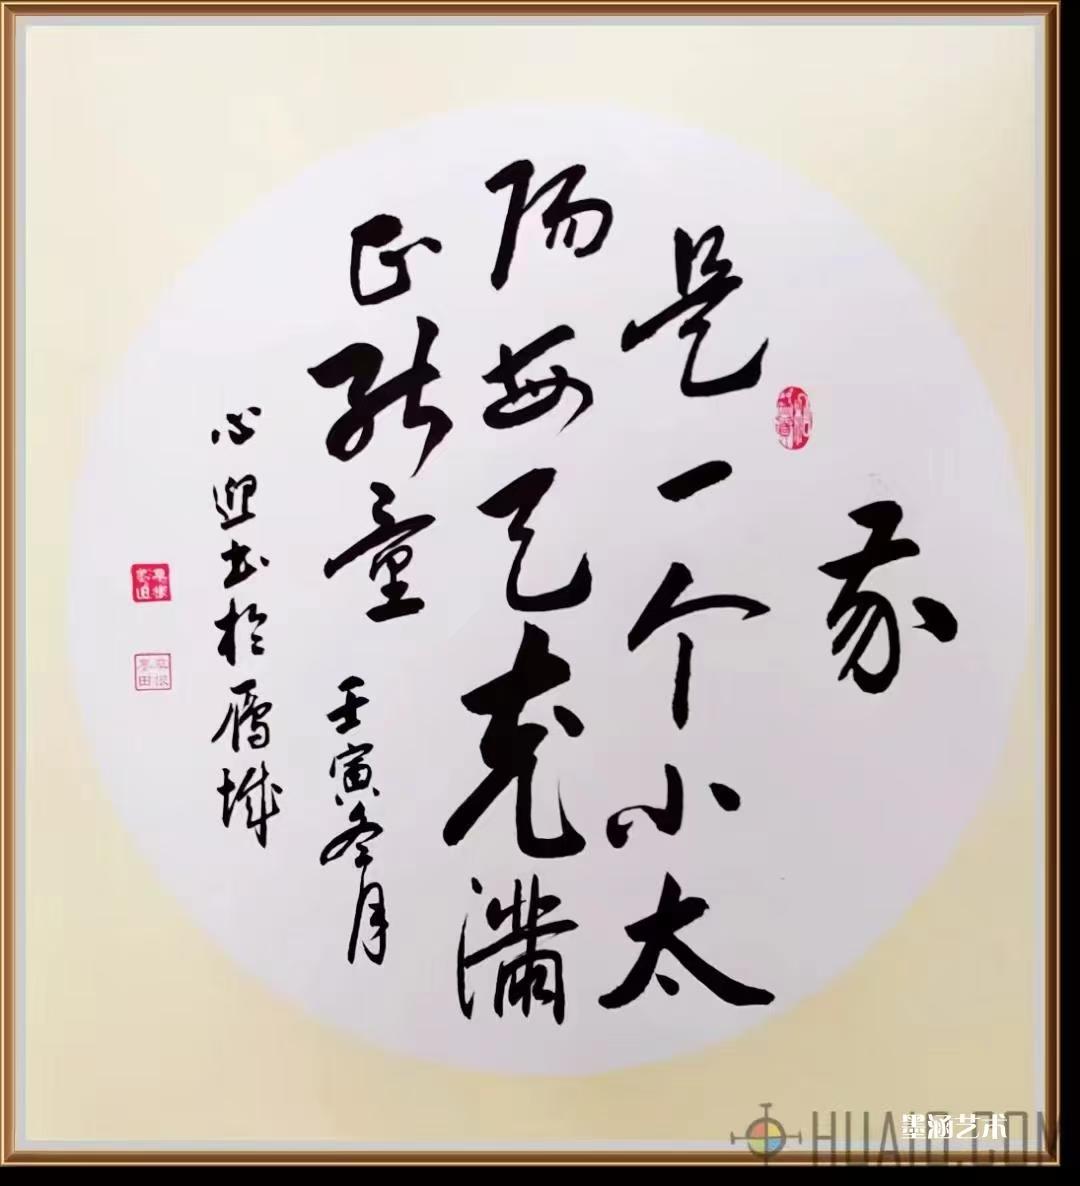 我
是一个小太
阳每天充满
正能量
壬寅冬月
心迎书于雁城
墨涵艺术
HUAIO.COM